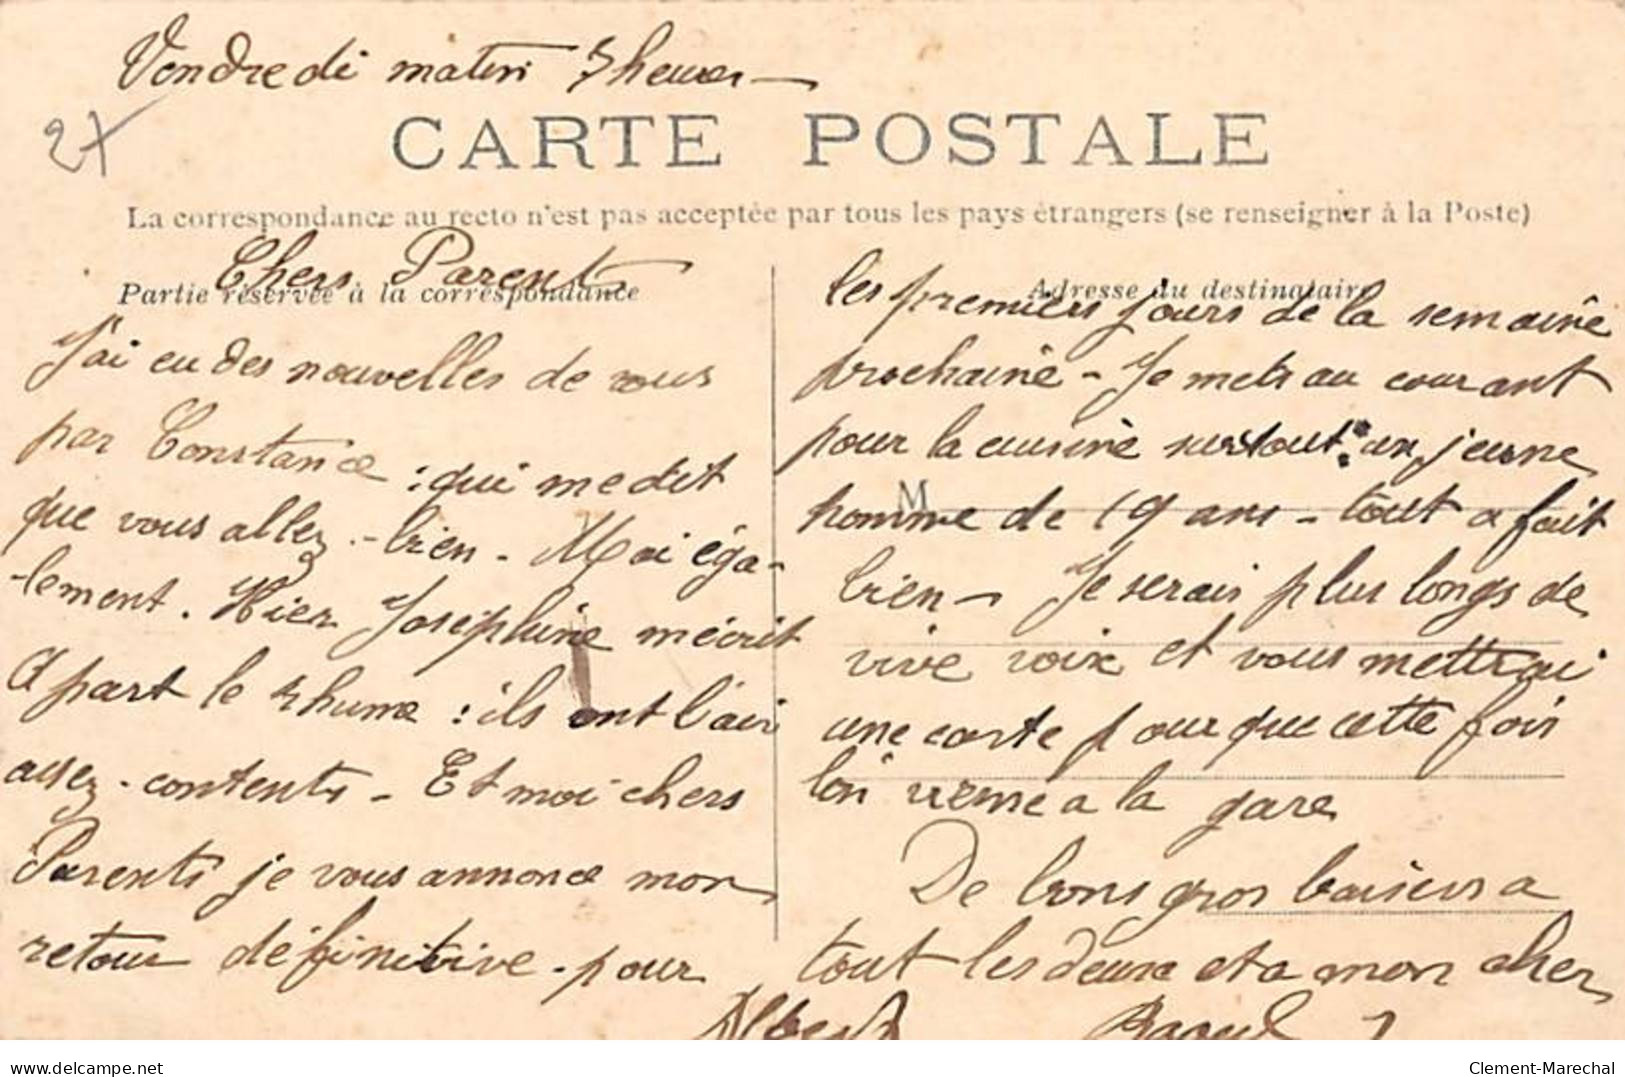 Vendredi matin 5 heures
27
CARTE POSTALE
La correspondance au recto n'est pas acceptée par tous les pays étrangers (se renseigner à la Poste)
Partie réservée à la correspondance
Adresse du destinataire
M
Chers Parents
J'ai eu des nouvelles de vous
par Constance : qui me dit
que vous allez - bien - Moi éga-
-lement. Hier Josephine m'écrit
A part le rhume : ils ont l'air
assez - contents - Et moi chers
Parents je vous annonce mon
retour définitive - pour
les premiers jours de la semaine
prochaine - Je mets au courant
pour la cuisine surtout : un jeune
homme de 19 ans - tout a fait
bien - Je serais plus longs de
vive voix et vous mettrai
une carte pour que cette fois
l'on vienne a la gare
De bons gros baisers a
tout les deux et a mon cher
Albert Raoul
delcampe.net
Clement-Marechal